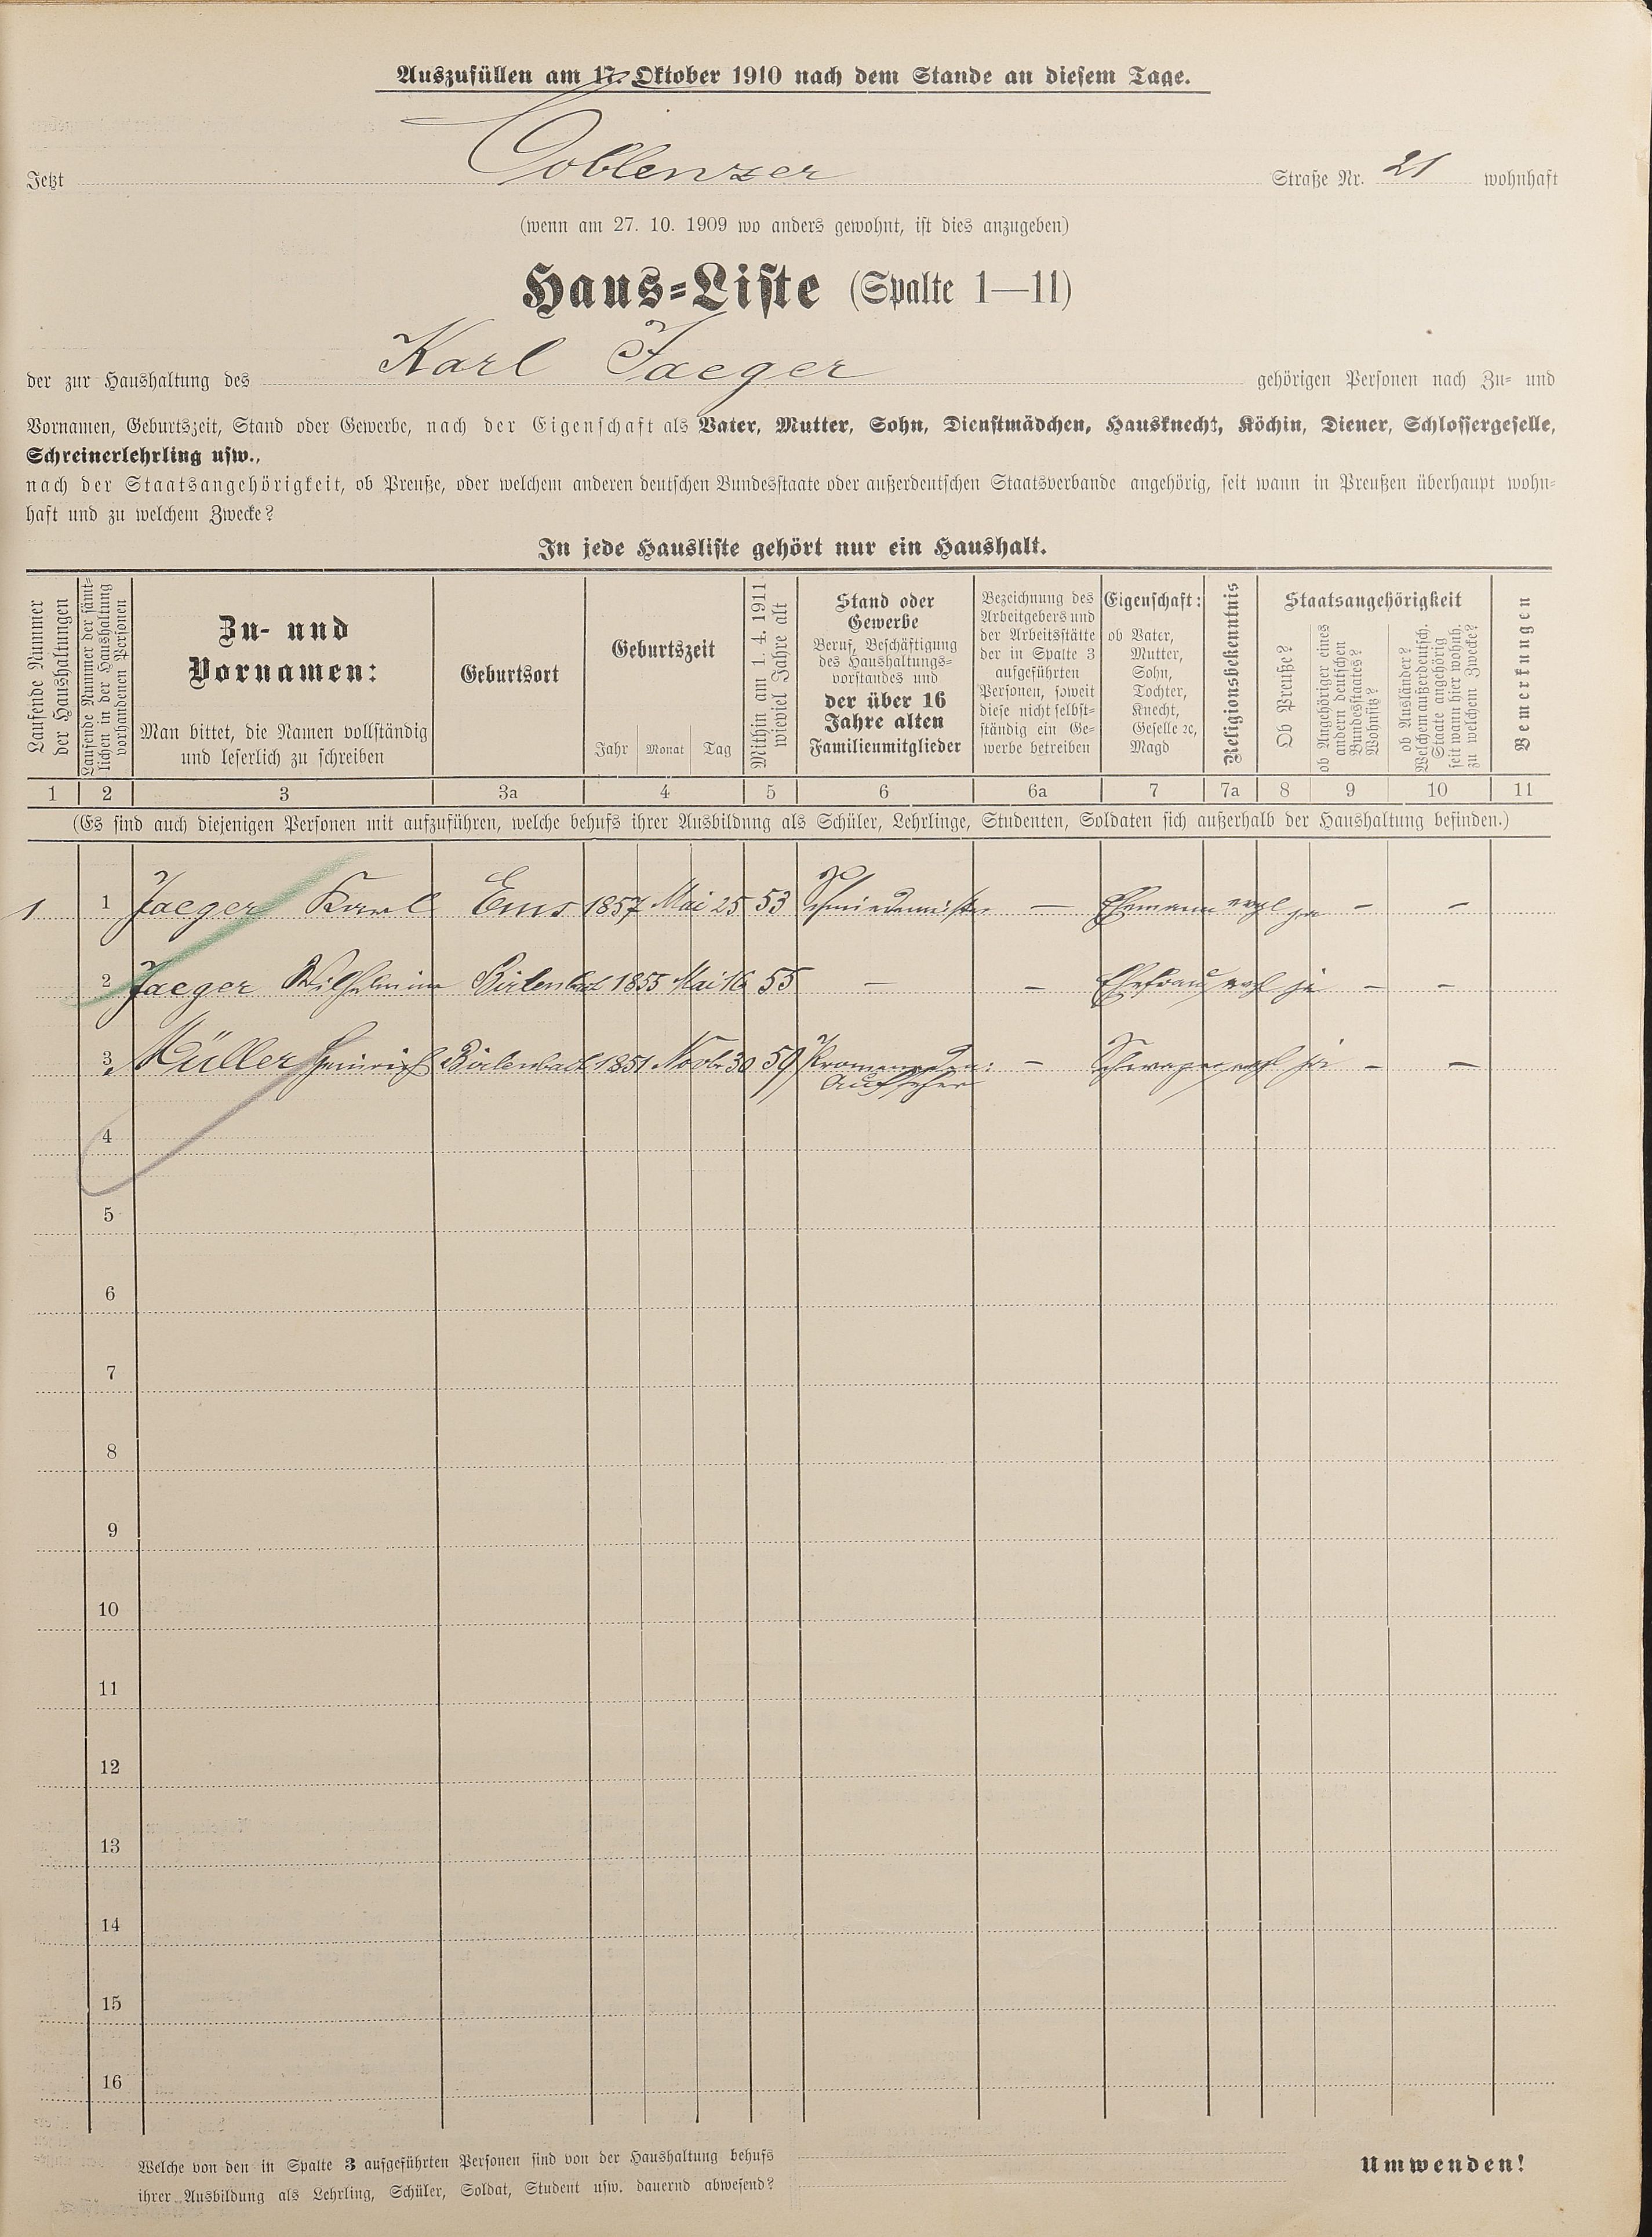 Auszufüllen am 17. Oktober 1910 nach dem Stande an diesem Tage.
Jetzt Coblenzer Straße Nr. 21 wohnhaft
(wenn am 27. 10. 1909 wo anders gewohnt, ist dies anzugeben)
Haus-Liste (Spalte 1—11)
der zur Haushaltung des Karl Jaeger gehörigen Personen nach Zu- und
Vornamen, Geburtszeit, Stand oder Gewerbe, nach der Eigenschaft als Vater, Mutter, Sohn, Dienstmädchen, Hausknecht, Köchin, Diener, Schlossergeselle,
Schreinerlehrling usw.,
nach der Staatsangehörigkeit, ob Preuße, oder welchem anderen deutschen Bundesstaate oder außerdeutschen Staatsverbande angehörig, seit wann in Preußen überhaupt wohn-
haft und zu welchem Zwecke?
In jede Hausliste gehört nur ein Haushalt.
Laufende Nummer
der Haushaltungen
Laufende Nummer der sämt-
lichen in der Haushaltung
vorhandenen Personen
Zu- und
Vornamen:
Man bittet, die Namen vollständig
und leserlich zu schreiben
Geburtsort
Geburtszeit
Jahr Monat Tag
Mithin am 1. 4. 1911
wieviel Jahre alt
Stand oder
Gewerbe
Beruf, Beschäftigung
des Haushaltungs-
vorstandes und
der über 16
Jahre alten
Familienmitglieder
Bezeichnung des
Arbeitgebers und
der Arbeitsstätte
der in Spalte 3
aufgeführten
Personen, soweit
diese nicht selbst-
ständig ein Ge-
werbe betreiben
Eigenschaft:
ob Vater,
Mutter,
Sohn,
Tochter,
Knecht,
Geselle ꝛc,
Magd
Religionsbekenntnis
Staatsangehörigkeit
Ob Preuße?
ob Angehöriger eines
andern deutschen
Bundesstaates?
Wohnsitz?
ob Ausländer?
Welchem außerdeutsch.
Staate angehörig
seit wann hier wohnh.
zu welchem Zwecke?
Bemerkungen
1 2 3 3a 4 5 6 6a 7 7a 8 9 10 11
(Es sind auch diejenigen Personen mit aufzuführen, welche behufs ihrer Ausbildung als Schüler, Lehrlinge, Studenten, Soldaten sich außerhalb der Haushaltung befinden.)
1 1 Jaeger Karl Ems 1857 Mai 25 53 Schmiedemeister — Ehemann evgl ja — —
2 Jaeger Wilhelmine Birlenbach 1855 Mai 16 55 — — Ehefrau evgl ja — —
3 Müller Heinrich Birlenbach 1851 Novbr 30 59 Promenaden: — Schwager evgl ja — —
Aufseher
4
5
6
7
8
9
10
11
12
13
14
15
16
Welche von den in Spalte 3 aufgeführten Personen sind von der Haushaltung behufs
ihrer Ausbildung als Lehrling, Schüler, Soldat, Student usw. dauernd abwesend?
Umwenden!